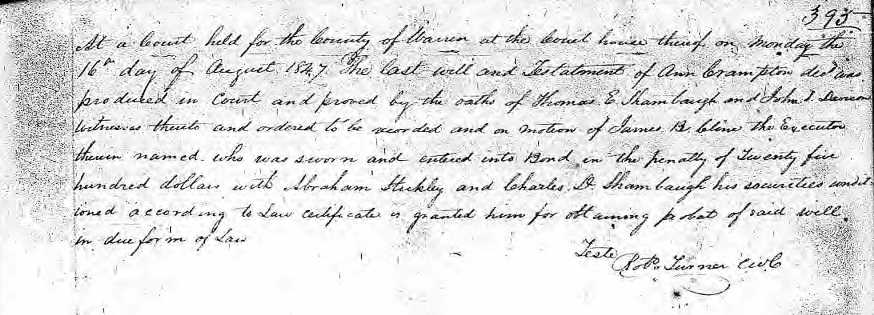 395
At a Court held for the County of Warren at the Court house thereof on Monday the
16th day of August 1847 The last will and Testatment of Ann Crampton decd was
produced in Court and proved by the oaths of Thomas E. Shambaugh and John S.
witnesses thereto and ordered to be recorded and on motion of James B. Cline the Executor
therein named who was sworn and entered into Bond in the penalty of Twenty five
hundred dollars with Abraham Stickley and Charles D. Shambaugh his securities condit
ioned according to Law certificate is granted him for obtaining probat of said will
in due form of Law
Teste
Robt Turner CWC